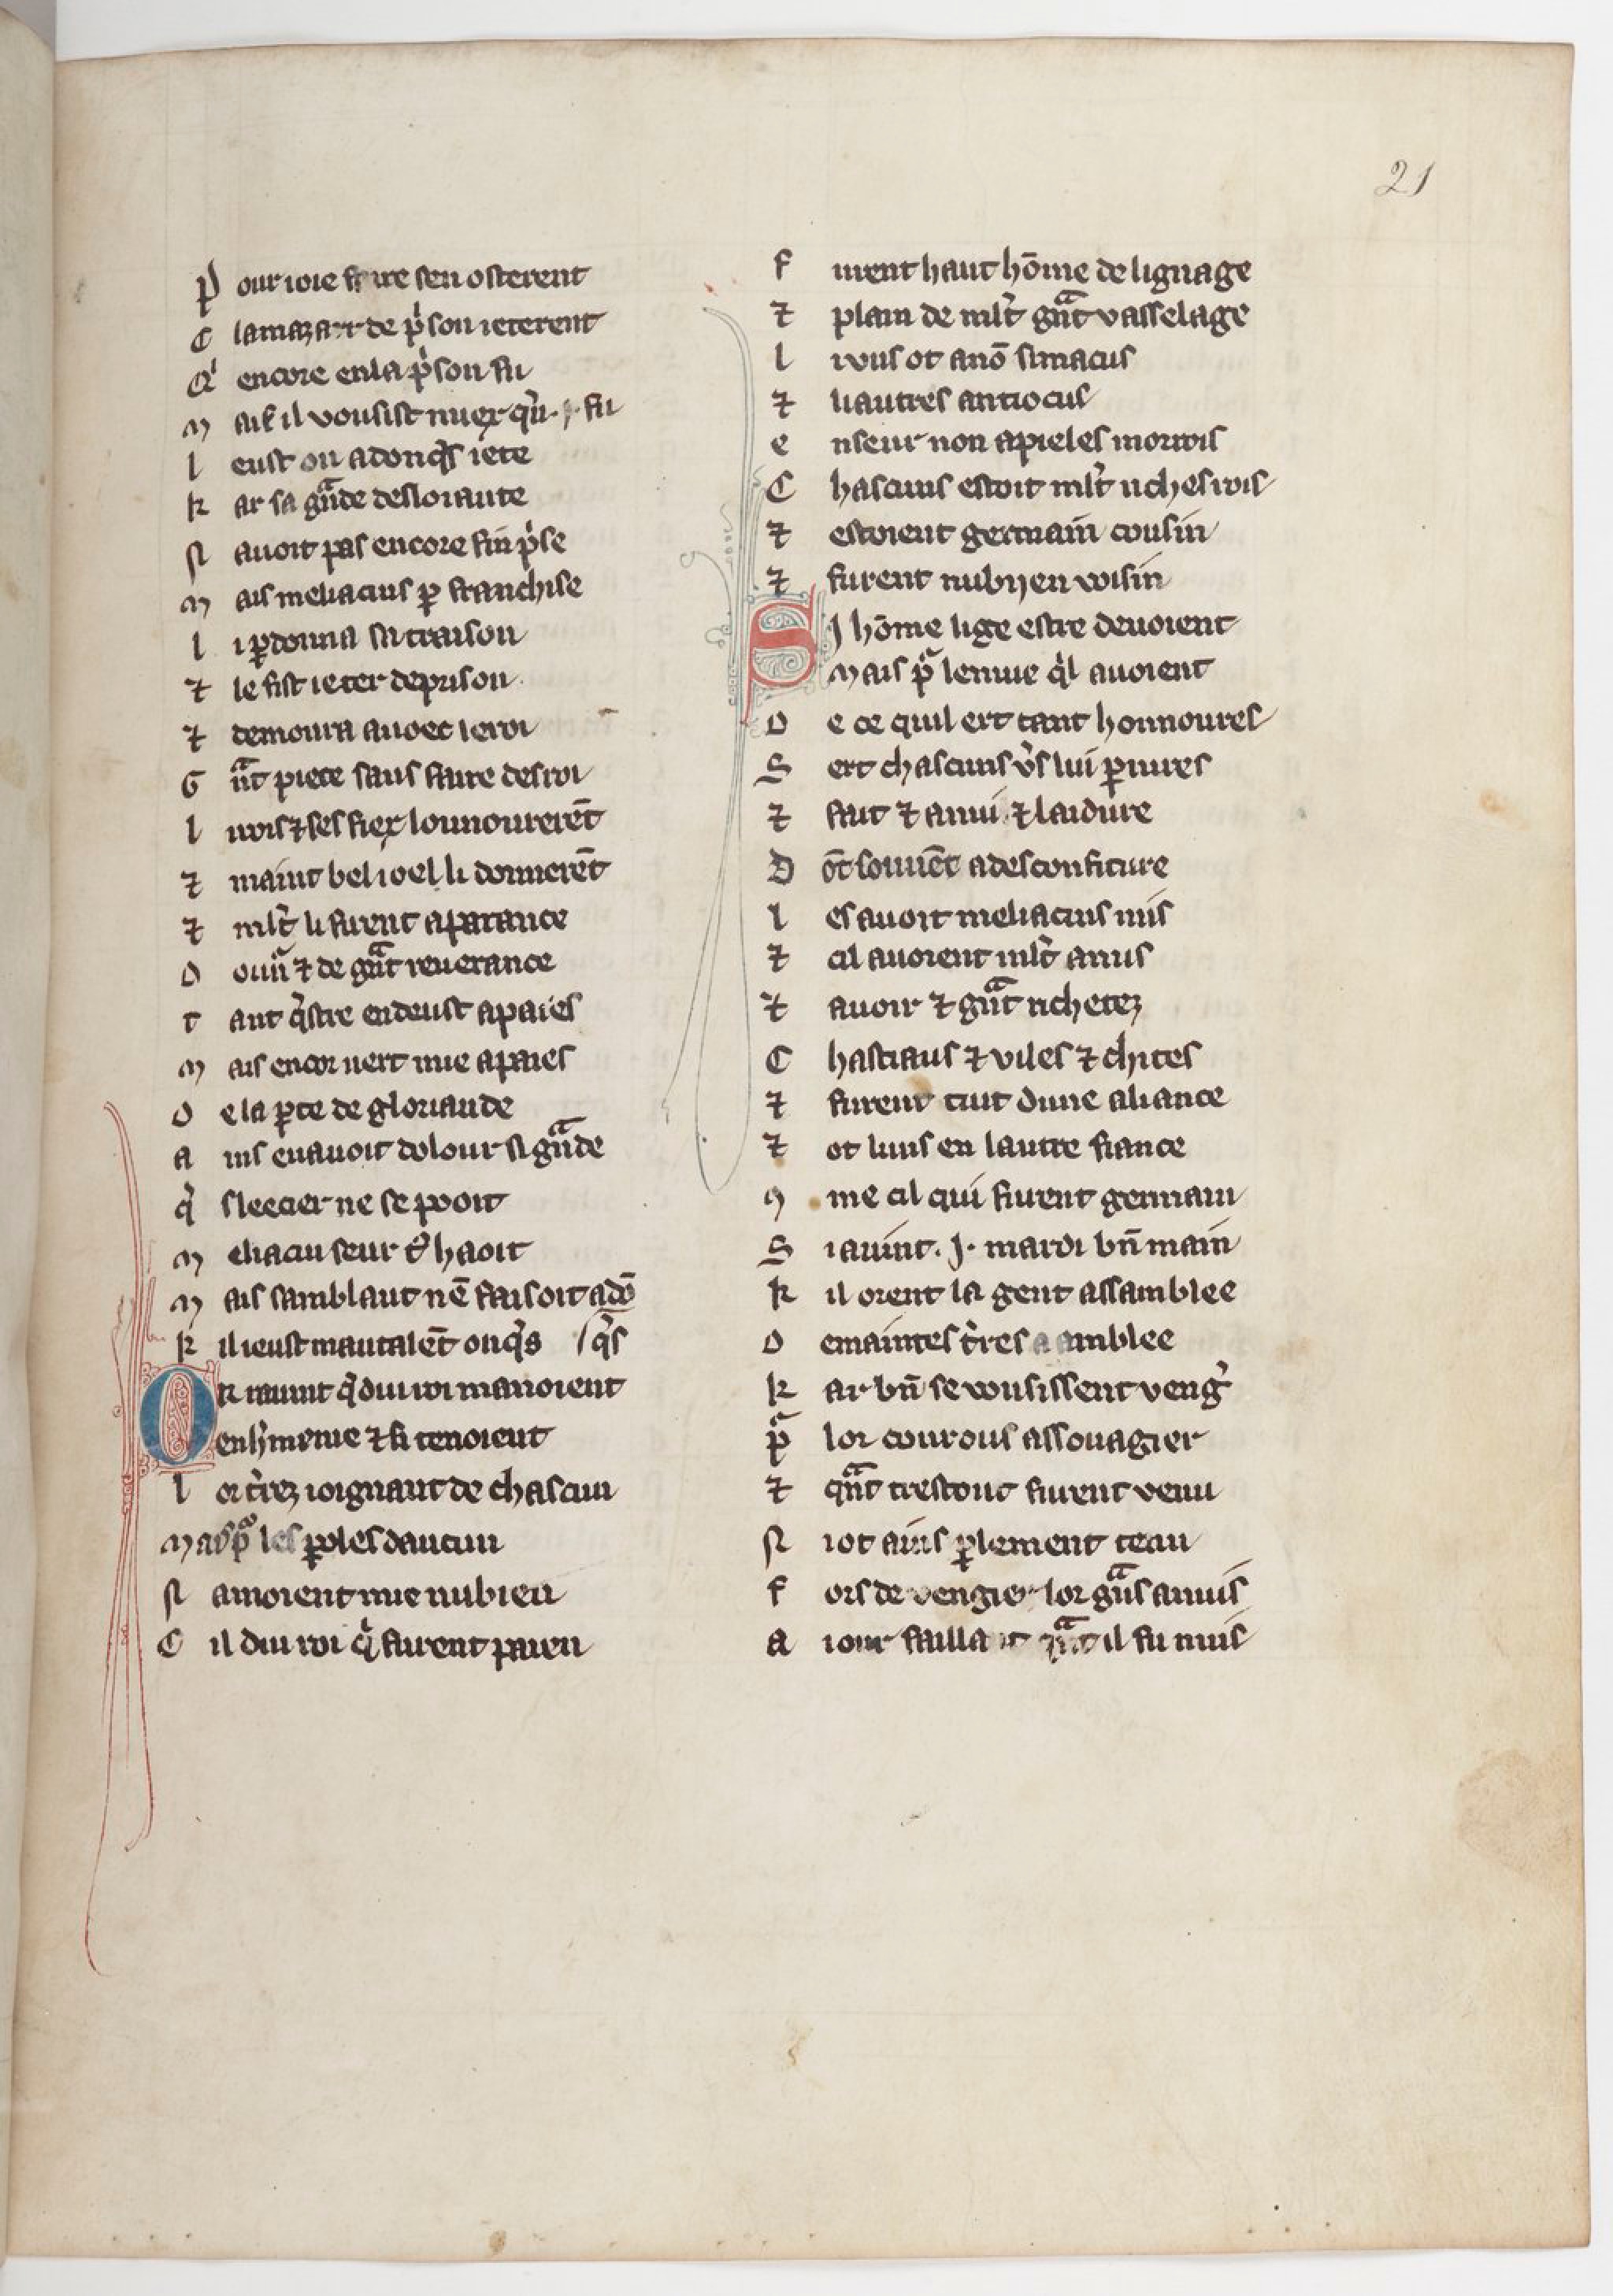 21
P our ioie faire sen osterent
C lamazart de p'son ieterent
Q' encore en la p'son fu
M ais il vousist miex q'u . j . fu
l eust on adonq's iete
k ar sa gͣnde desloiaute
N auoit pas encore fin p'se
M ais meliacius ꝑ franchise
l i ꝑdonna sa traison
⁊ le fist ieter de prison
⁊ demoura auoec le roi
G ͣnt piece sans faire desroi
l i rois ⁊ ses fiex lounourerēt
⁊ maint bel ioel li donnerēt
⁊ ml't li furent aparance
D ounͣ ⁊ de gͣnt reuerance
t ant q'stre en deust apaies
M ais encor nert mie apaies
D e la ꝑte de gloriande
a ins en auoit dolour si gͣnde
q' sleecier ne se pooit
M eliacin seur t' haoit
M ais samblant nē faisoit adō
k il i eust mautalēt onq's / q's
OR auint q' dui roi manoient
en h'menie ⁊ si tenoient
l or t'rez ioignant de chascun
Mais pͣ les ꝑoles daucun
N amoient mie nubien
C il dui roi q' furent paien
F urent haut hōme de lignage
⁊ plain de ml't gͣnt vasselage
l i uns ot a nō simacus
⁊ li autres antiocus
e nseur non apieles morois
C hascuns estoit ml't riches rois
⁊ estoient germain cousin
⁊ furent nubyen voisin
SJ hōme lige estre deuoient
Mais pͣ lenuie q'l auoient
D e ce quil ert tant honnoures
S ert chascuns v's lui ꝑiures
⁊ fait ⁊ anui ⁊ laidure
D ōt souuēt a desconfiture
l es auoit meliacins mis
⁊ cil auoient ml't amis
⁊ auoir ⁊ gͣnt richetez
C hastiaus ⁊ viles ⁊ chites
⁊ furent tuit dune aliance
⁊ ot luns en lautre fiance
9 me cil qui furent germain
S i auint . J . mardi bn̄ main
k il orent la gent assamblee
D e maintes t'res a amblee
k ar bn̄ se vousissent veng'
pͣ lor courous assouagier
⁊ qͣnt trestout furent venu
N i ot ains ꝑlement tenu
F ors de vengier lor gͣns anuis
A iour faillant qͣnt il fu nuis